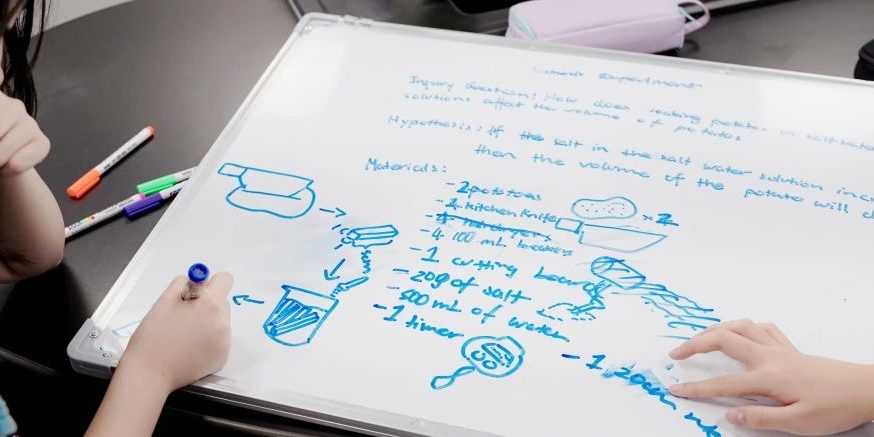 Experiment
Inquiry Question: How does soaking potatos in salt water
solutions affect the volume of potatos
Hypothesis: If the salt in the salt water solution incr
then the volume of the potato will d
Materials:
- 2 potatoes
x2
- 1 kitchen knife
- 4 100 mL beakers
- 1 cutting board
- 20g of salt
- 500 mL of water
- 1 timer
- 1